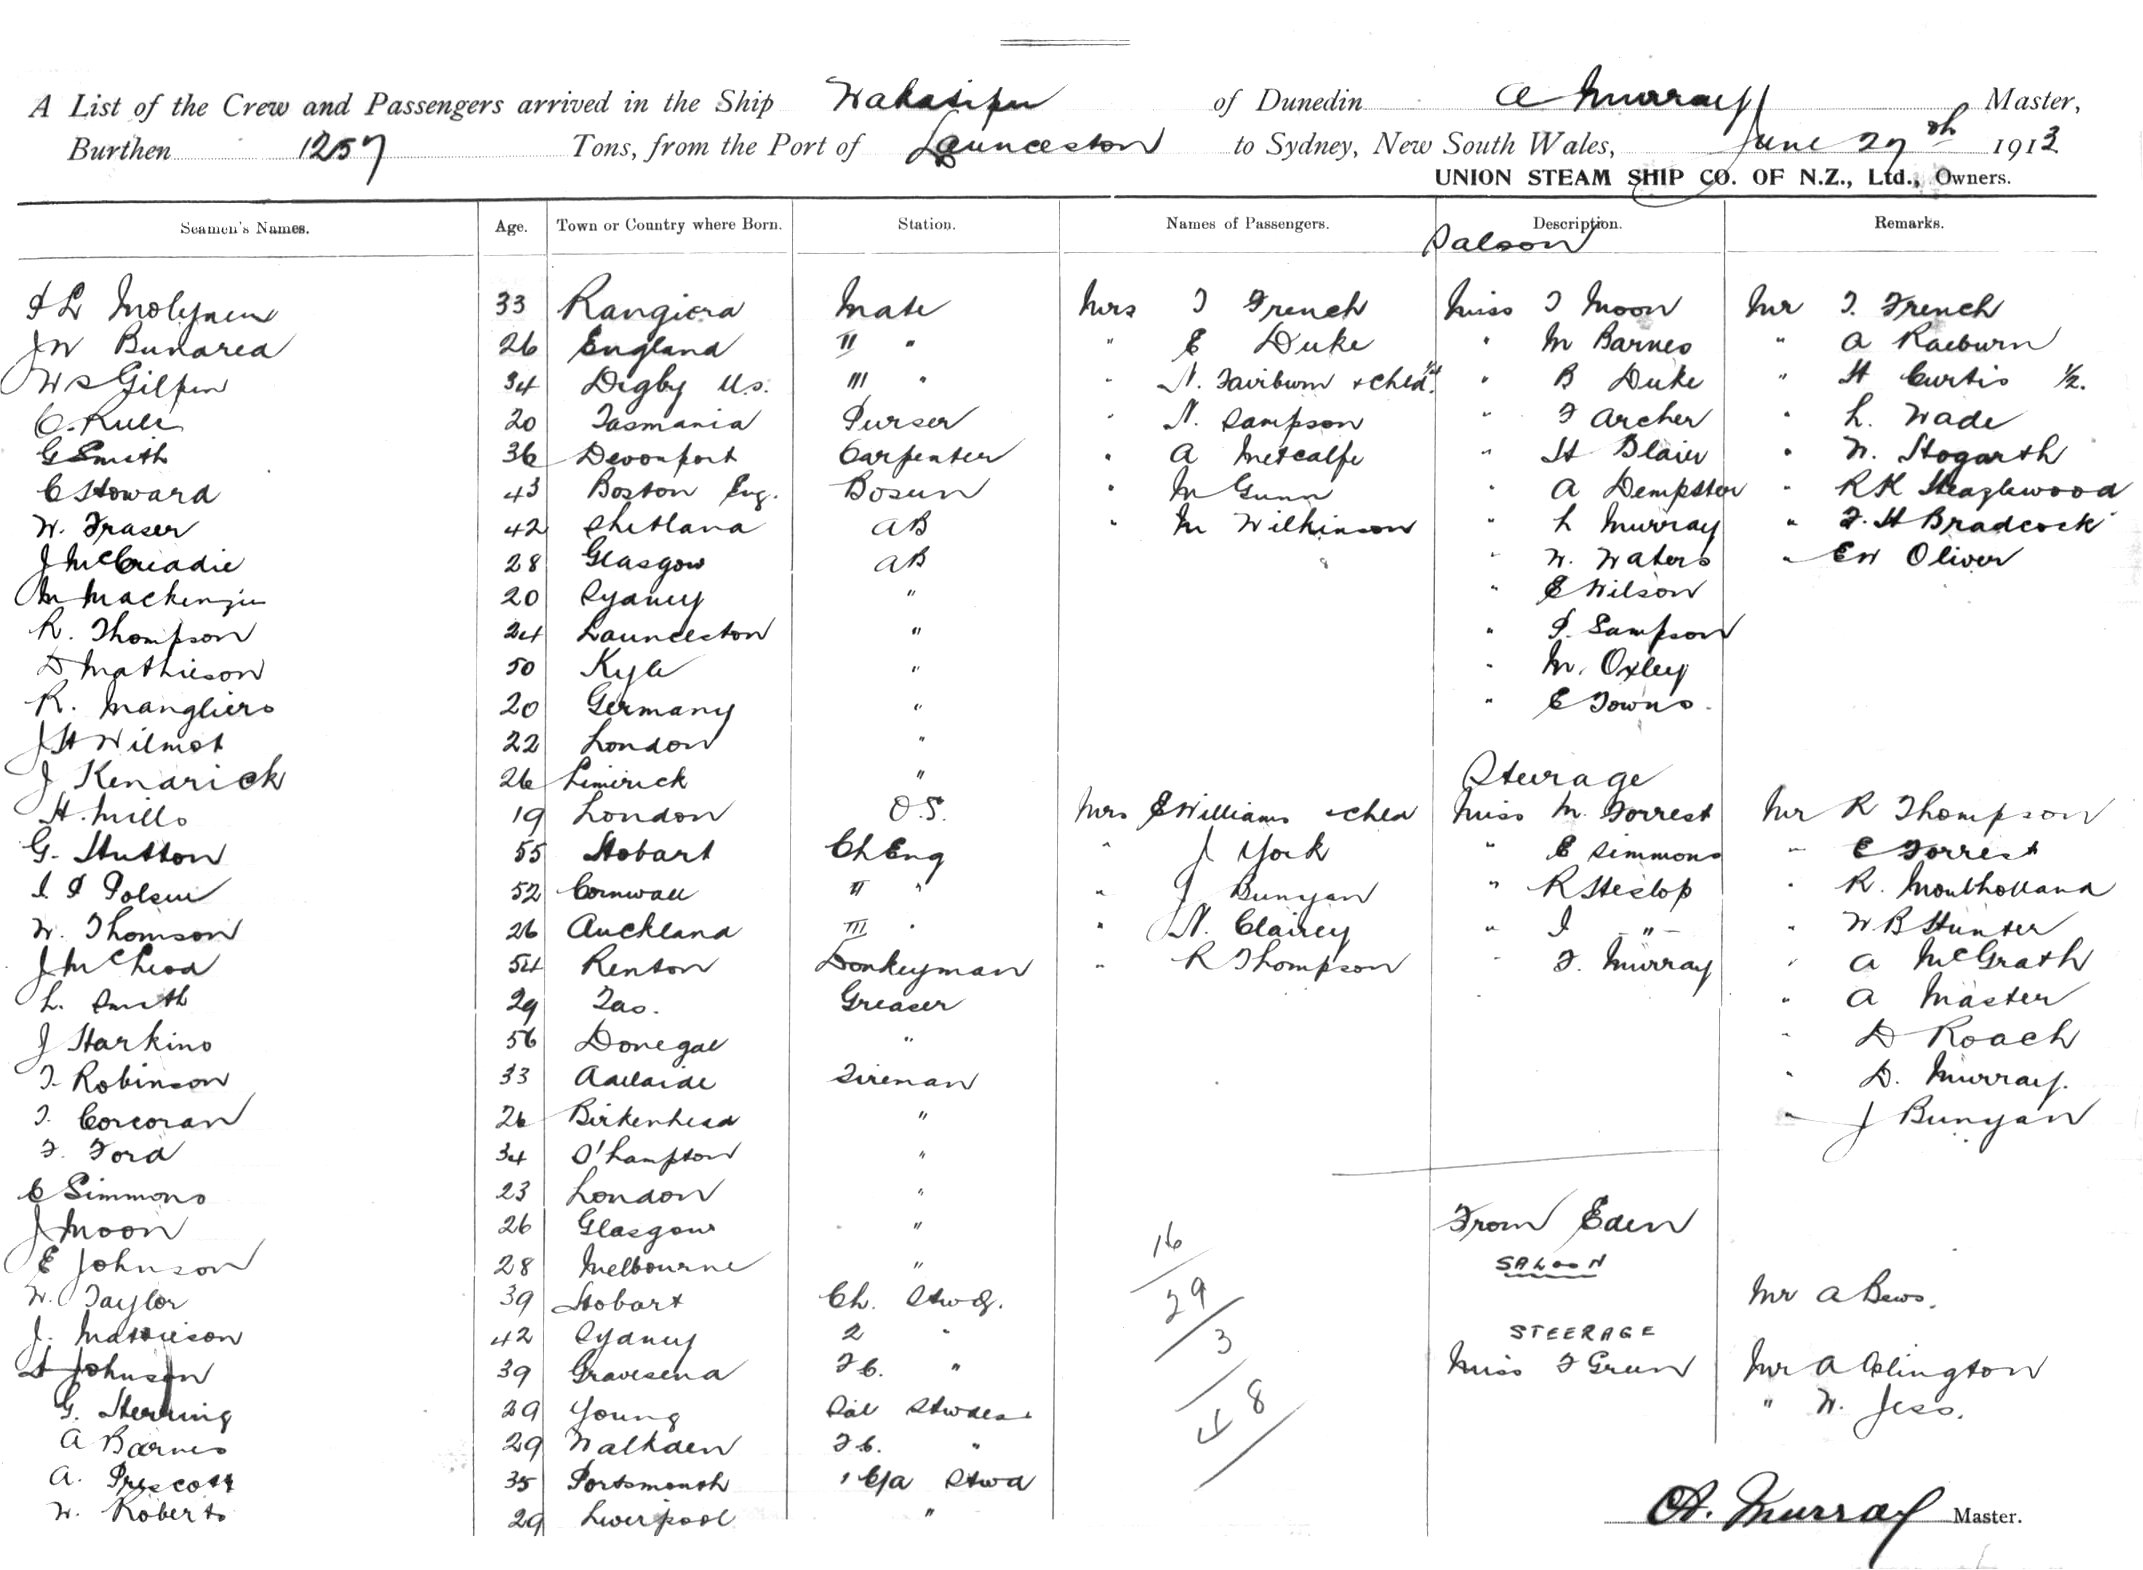 A List of the Crew and Passengers arrived in the Ship Wakatipu of Dunedin A Murray Master,
Burthen 1257 Tons, from the Port of Launceston to Sydney, New South Wales, June 27th 1913
UNION STEAM SHIP CO. OF N.Z., Ltd., Owners.
Seamen's Names. Age. Town or Country where Born. Station. Names of Passengers. Description. Remarks.
Saloon
33 Rangiora Mate Mrs T French Miss T Moon Mr T. French
J W 26 England II " " E Duke " M Barnes " A Raeburn
W S Gilpin 34 Digby U.S. III " " N. Fairburn & Chld " B Duke " H Curtis 1/2.
C. Rule 20 Tasmania Purser " N. Sampson " F Archer " L. Wade
G Smith 36 Devonport Carpenter " A Metcalfe " H Blair " W. Hogarth
C Howard 43 Boston Eng. Bosun " M Gunn " A Dempster " R K
W. Fraser 42 Shetland AB " M Wilkinson " L Murray " F. H Bradcock
J McCreadie 28 Glasgow AB " W. Waters " E W Oliver
M Mackenzie 20 Sydney " " E Wilson
R. Thompson 24 Launceston " " P. Sampson
D Mathieson 50 Kyle " " M. Oxley
R. Mangliers 20 Germany " " E Towns.
J H Wilmot 22 London "
J Kendrick 26 Limerick " Steerage
H. Mills 19 London O.S. Mrs E Williams & Chld Miss M. Forrest Mr R Thompson
G. Hutton 55 Hobart Ch Eng " J York " E Simmons " E Forrest
52 Cornwall II " " J Bunyan " R Heslop " R. Moulholland
W. Thomson 26 Auckland III " " N. Clairey " I " " W B Hunter
J McLeod 54 Renton Donkeyman " R Thompson " F. Murray " A McGrath
L. Smith 29 Tas. Greaser " A Master
J Harkins 56 Donegal " " D Roach
T. Robinson 33 Adelaide Fireman " D. Murray.
T. Corcoran 26 Birkenhead " " J Bunyan
F. Ford 34 S'hampton "
C Simmons 23 London "
J Moon 26 Glasgow " From Eden
E Johnson 28 Melbourne " SALOON
W. Taylor 39 Hobart Ch. Stwd. Mr A Bews.
J. Mathieson 42 Sydney 2 " STEERAGE
H Johnson 39 Gravesend F C. " Miss F Green Mr A Aslington
G. Herring 29 Young Sal Stwdess " W. Jess.
A Barnes 29 Walkden F C. "
A. Prescott 35 Portsmouth Stwd
W. Roberts 29 Liverpool "
16
29
3
48
A. Murray Master.